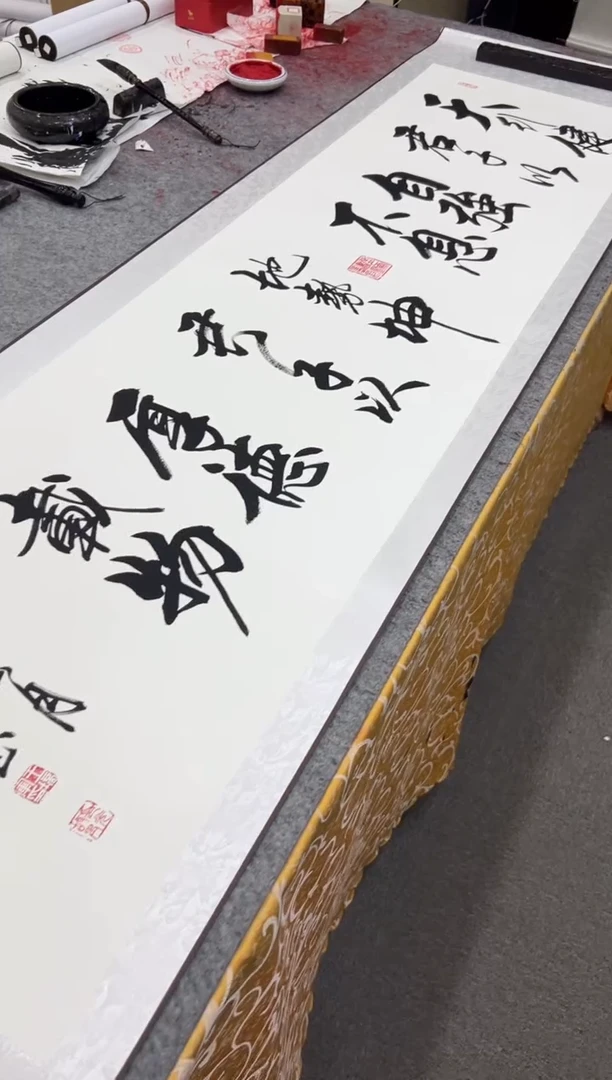 天行健
君子以
自強
不息
地勢坤
君子以
厚德
載物
月